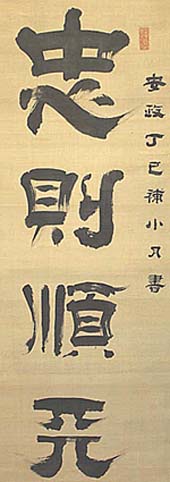 忠則順天
安政丁巳補小凡書